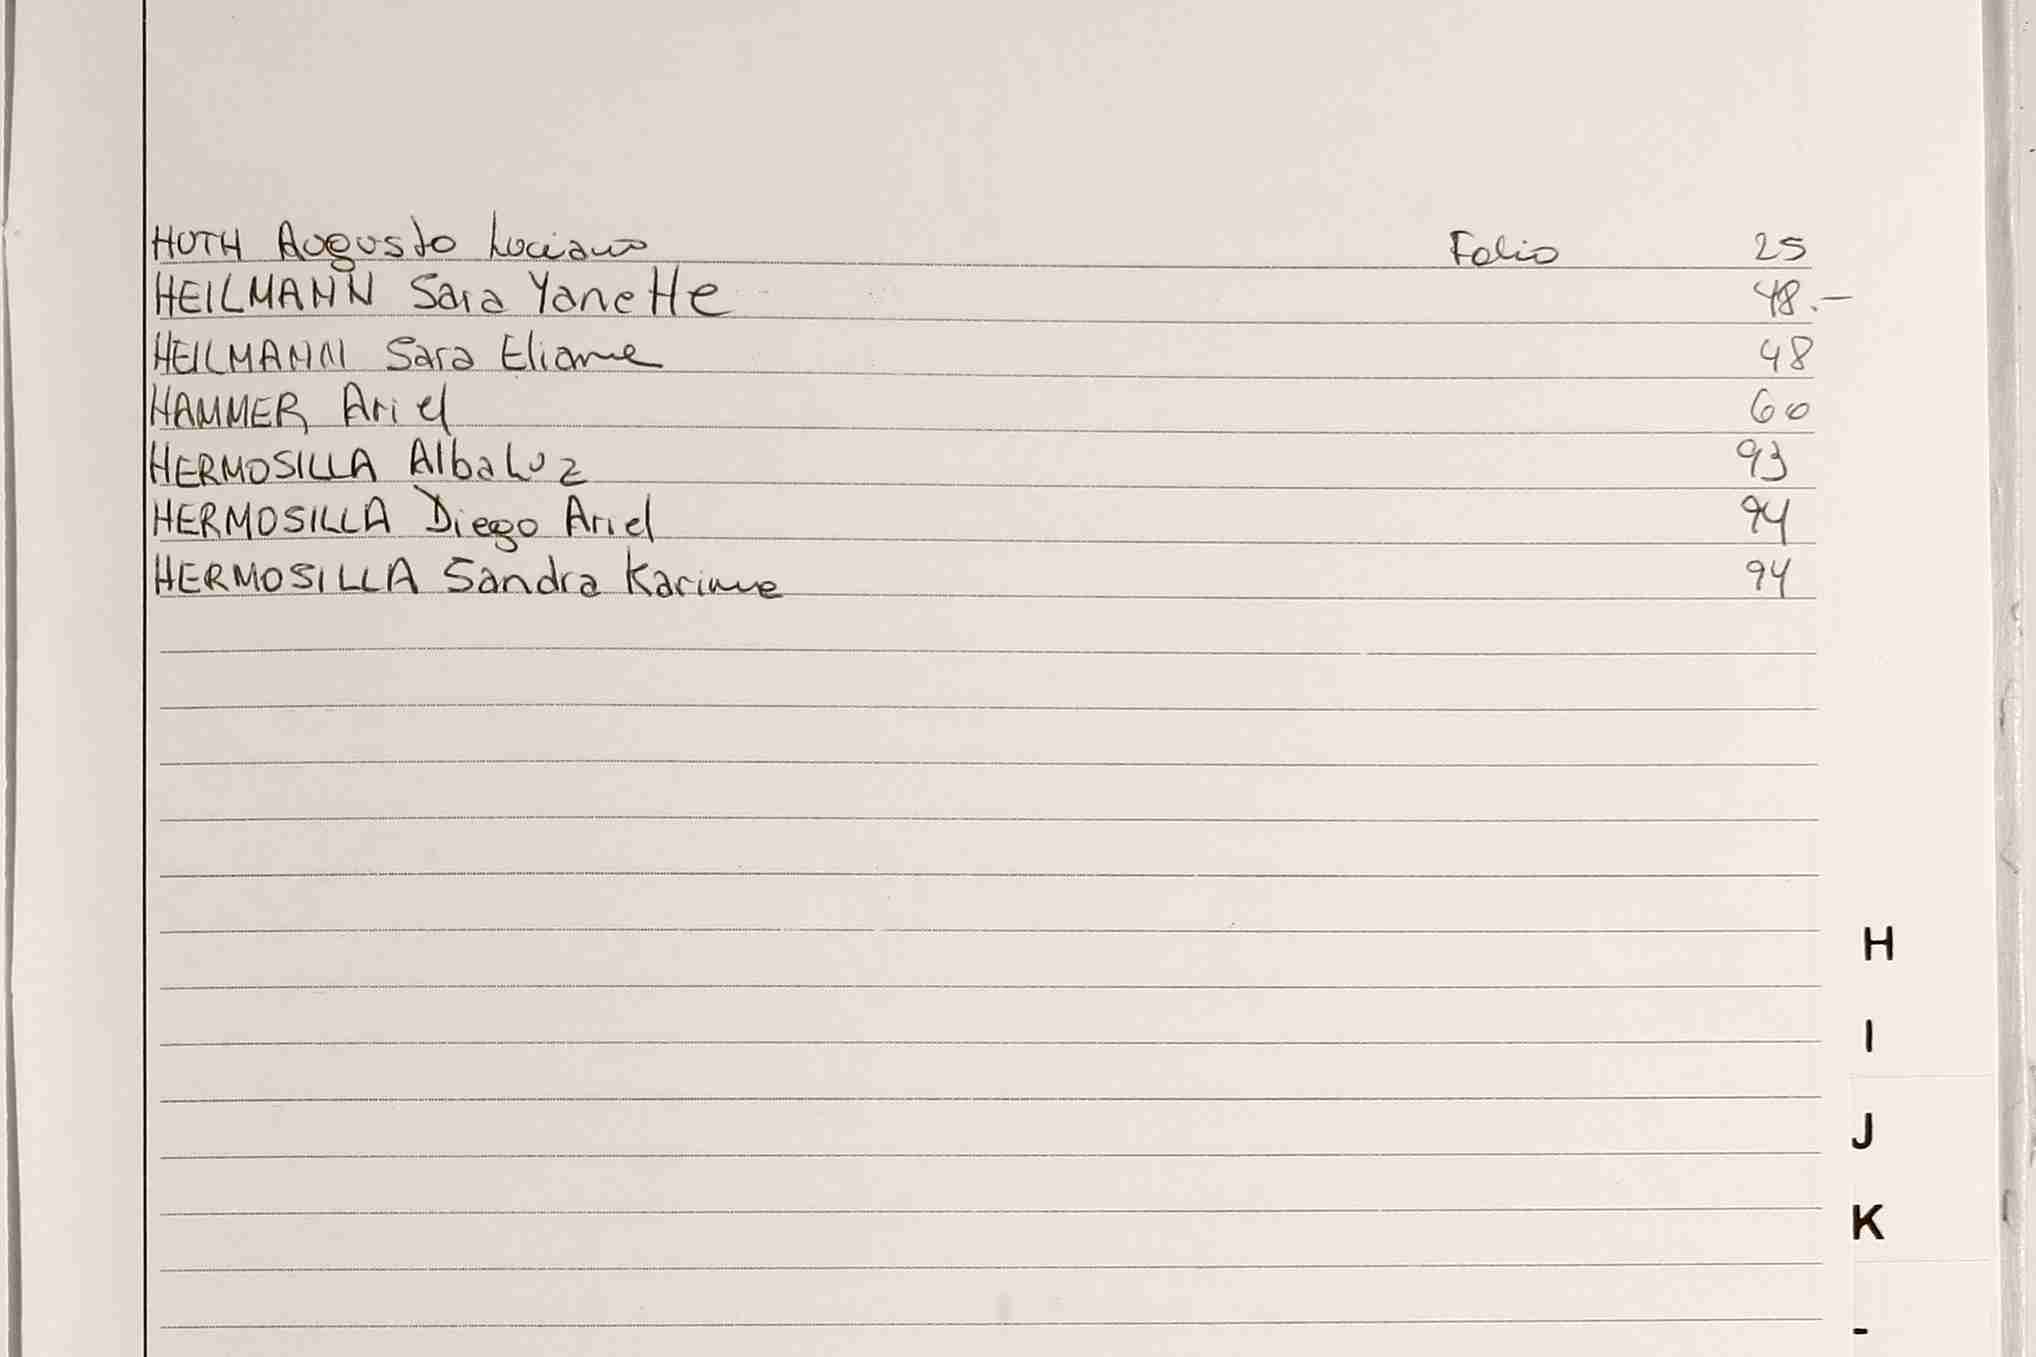 HUTH Augusto Luciano Folio 25
HEILMANN Sara Yanette 48.-
HEILMANN Sara Eliane 48
HAMMER Ariel 60
HERMOSILLA Alba Luz 93
HERMOSILLA Diego Ariel 94
HERMOSILLA Sandra Karime 94
H
I
J
K